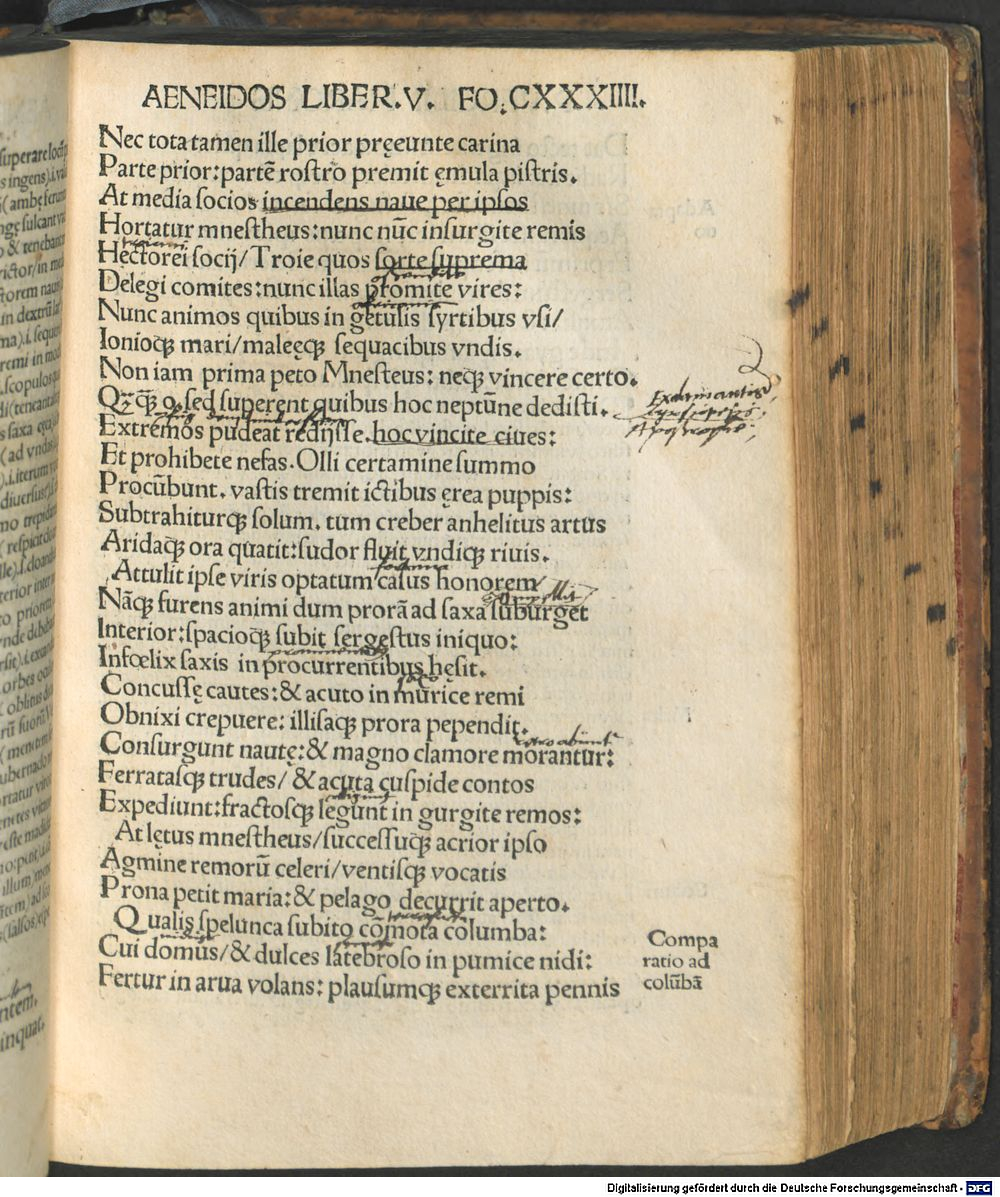 AENEIDOS LIBER.V. FO.CXXXIIII.
Nec tota tamen ille prior pręeunte carina
Parte prior: partē rostro premit ęmula pistris.
At media socios incendens naue per ipsos
Hortatur mnestheus: nunc nūc insurgite remis
Hectorei socij/Troie quos sorte suprema
Delegi comites: nunc illas promite vires:
Nunc animos quibus in getulis syrtibus vsi/
Ionioq̢ mari/maleęq̢ sequacibus vndis.
Non iam prima peto Mnesteus: neq̢ vincere certo.
Qȝq̄ȝ o, sed superent quibus hoc neptūne dedisti.
Extremos pudeat redijsse. hoc vincite ciues:
Et prohibete nefas. Olli certamine summo
Procūbunt. vastis tremit ictibus ęrea puppis:
Subtrahiturq̢ solum. tum creber anhelitus artus
Aridaq̢ ora quatit: sudor fluit vndiq̢ riuis.
Attulit ipse viris optatum casus honorem/
Nāq̢ furens animi dum prorā ad saxa suburget
Interior: spacioq̢ subit sergestus iniquo:
Infœlix saxis in procurrentibus hęsit.
Concussę cautes: & acuto in murice remi
Obnixi crepuere: illisaq̢ prora pependit.
Consurgunt nautę: & magno clamore morantur:
Ferratasq̢ trudes/ & acuta cuspide contos
Expediunt: fractosq̢ legunt in gurgite remos:
At lętus mnestheus/successuq̢ acrior ipso
Agmine remorū celeri/ventisq̢ vocatis
Prona petit maria: & pelago decurrit aperto.
Qualis spelunca subito cōmota columba:
Cui domus/& dulces latebroso in pumice nidi:
Fertur in arua volans: plausumq̢ exterrita pennis
Compa
ratio ad
colūbā
Digitalisierung gefördert durch die Deutsche Forschungsgemeinschaft - DFG